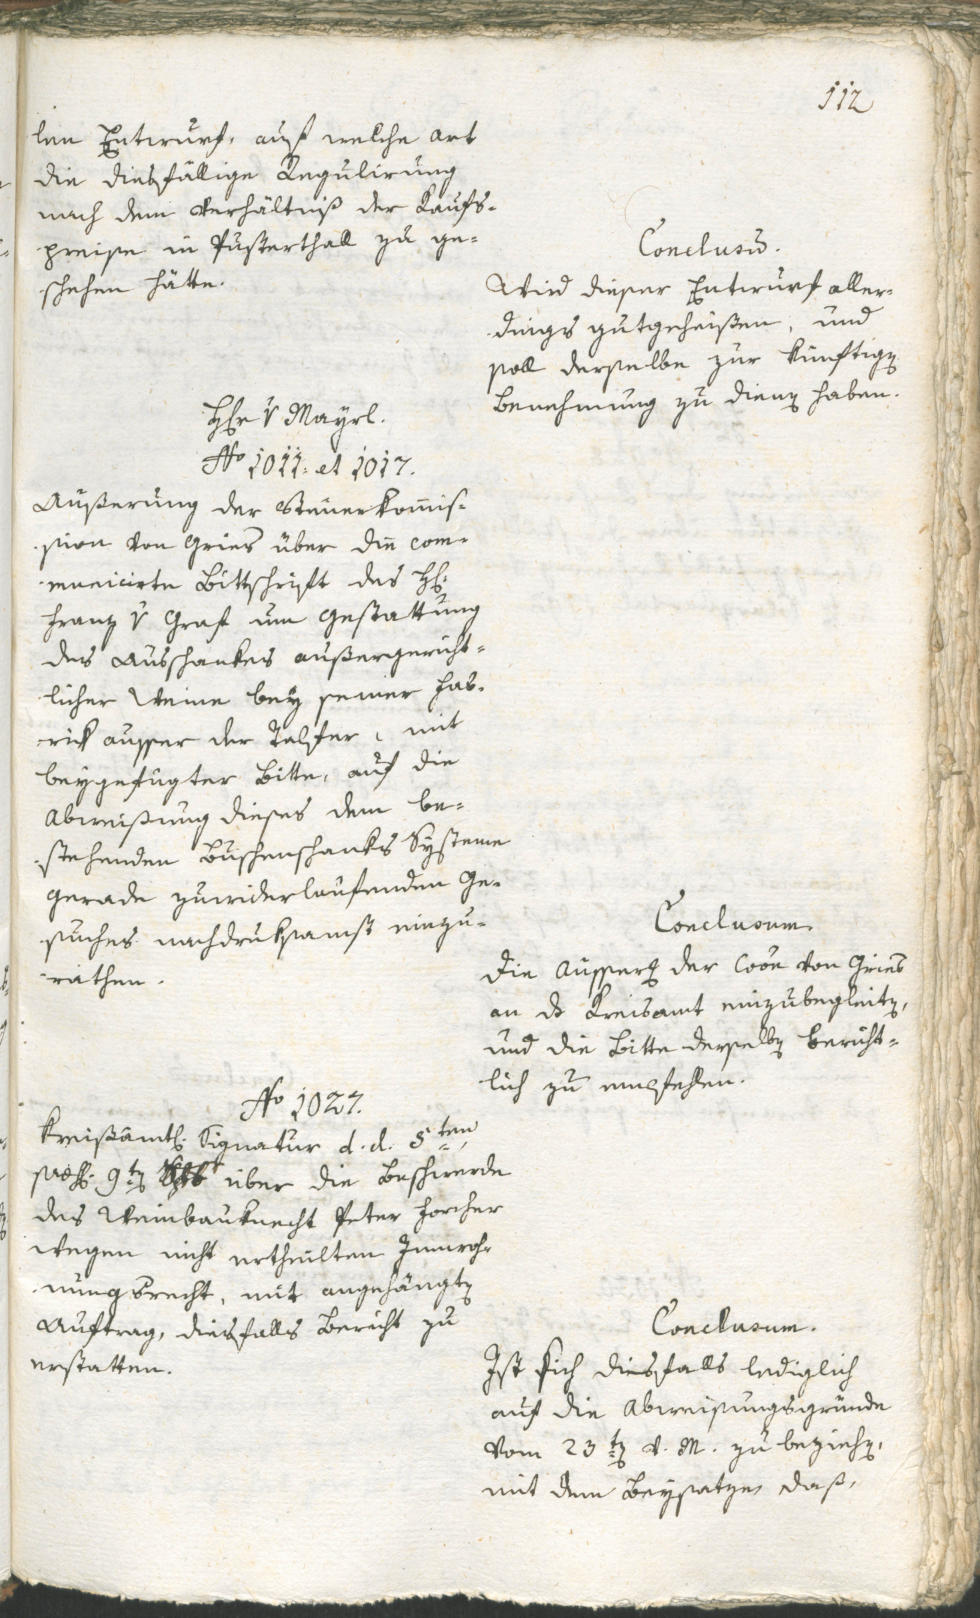 112
len Entwurf, auf welche art
die diesfällige Regulirung
nach dem Verhältniß der Kaufs-
preise in Pusterthall zu ge-
schehen hätte.
Conclusū.
Wird dieser Entwurf aller-
dings gutgeheißen, und
soll derselbe zur künftigen
Benehmung zu dienen haben.
Hr v Mayrl.
No 1011. et 1017.
Außerung der Steuerkom̅is-
sion von Gries über die com-
municirte Bittschrift des H:
Franz v Graf um Gestattung
des Ausschankes außergericht-
licher Weine bey seiner Fab-
rick ausser der Talfer, mit
beygefügter Bitte, auf die
Abweißung dieses dem be-
stehenden Buschenschanks Systeme
gerade zuwiderlaufenden Ge-
suches nachdruksamst einzu-
rathen.
Conclusum
Die Äusserg der Coon von Gries
an dz Kreisamt einzubegleiten,
und die Bitte derselben bericht-
lich zu empfehlen.
No 1027.
Kreißämtl. Signatur d. d. 5ten
9ten über die Beschwerde
des Weinbauknecht Peter Forcher
wegen nicht ertheilten Innwoh-
nungsrecht, mit angehängten
Auftrag, diesfalls Bericht zu
erstatten.
Conclusum.
Ist sich diesfalls lediglich
auf die Abweisungsgründe
vom 23ten v. M. zu beziehen,
mit dem Beysatze, daß,